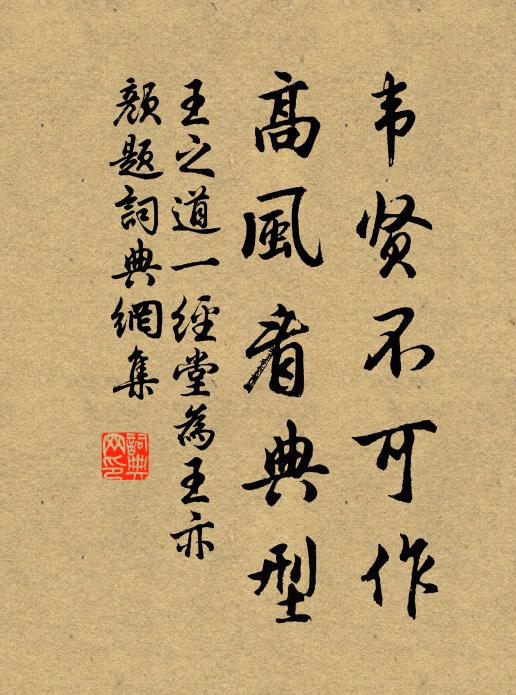 韦贤不可作
高風看典型
王之道一經堂為王亦
顏題詞典網集
詞典網印